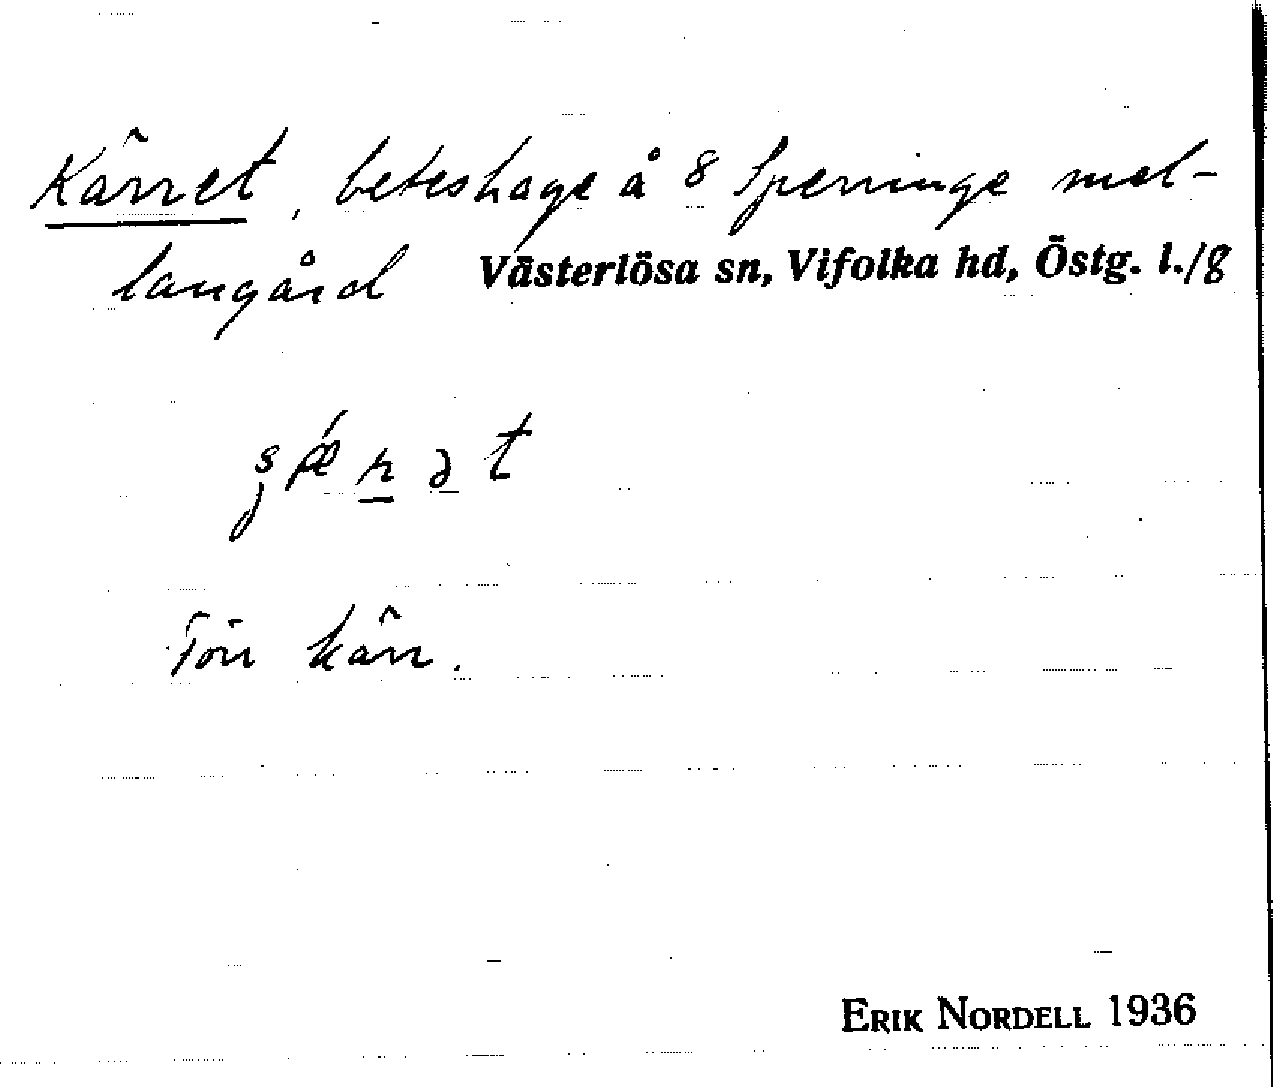 Kärret, beteshage å 8 Sperringe mel-
langård Västerlösa sn, Vifolka hd, Östg. l./8
Torr kärr.
ERIK NORDELL 1936